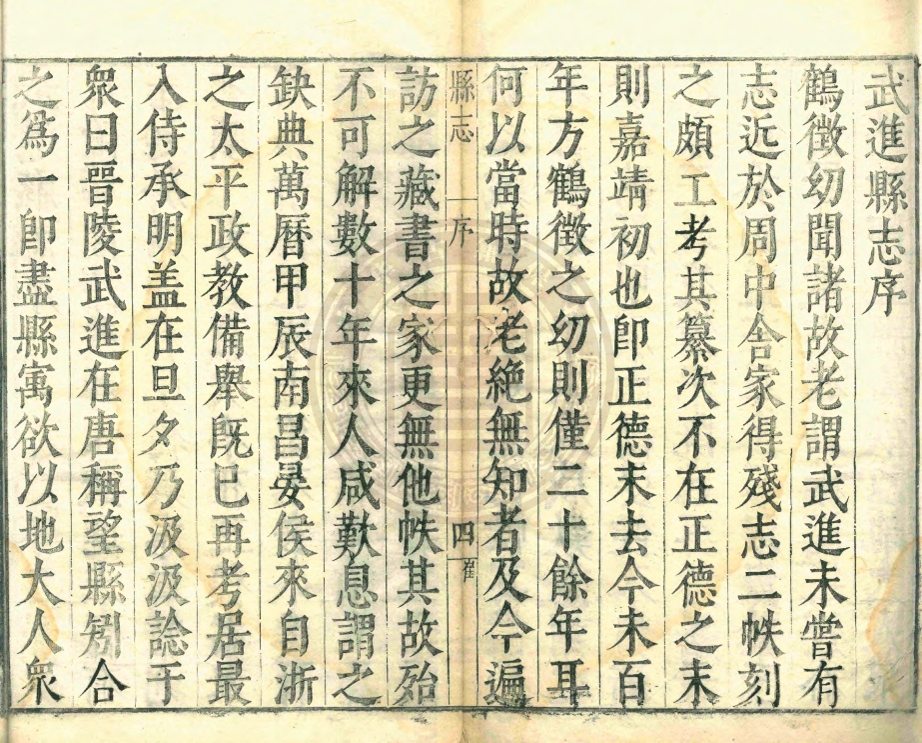 武進縣志序
鶴徵幼聞諸故老謂武進未嘗有
志近於周中舍家得殘志二帙刻
之頗工考其纂次不在正德之末
則嘉靖初也卽正德末去今未百
年方鶴徵之幼則僅二十餘年耳
何以當時故老絶無知者及今遍
縣志 序 四 崔
訪之藏書之家更無他帙其故殆
不可解數十年來人咸歎息謂之
缺典萬曆甲辰南昌晏侯來自浙
之太平政教備舉旣巳再考居最
入侍承明盖在旦夕乃汲汲諗于
衆曰晉陵武進在唐稱望縣矧合
之爲一卽盡縣寓欲以地大人衆